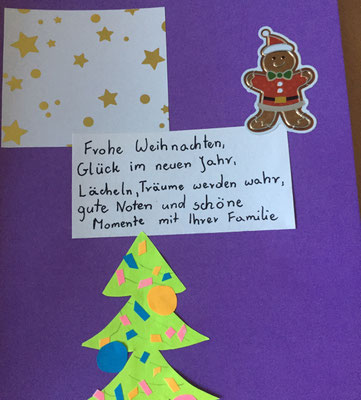 Frohe Weihnachten,
Glück im neuen Jahr,
Lächeln, Träume werden wahr,
gute Noten und schöne
Momente mit Ihrer Familie